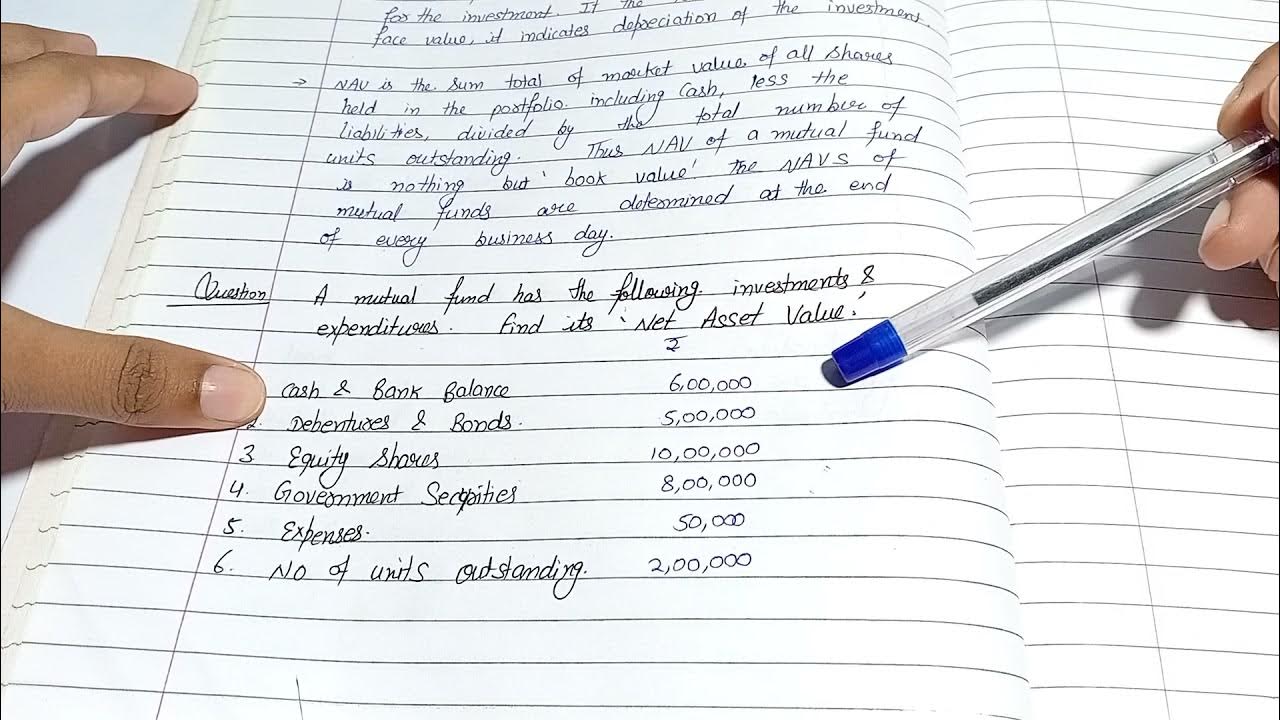 for the investment. If the
face value, it indicates depreciation of the investment.
→ NAV is the sum total of market value of all shares
held in the portfolio including cash, less the
liabilities, divided by the total number of
units outstanding. Thus NAV of a mutual fund
is nothing but 'book value' The NAVS of
mutual funds are determined at the end
of every business day.
Question A mutual fund has the following investments &
expenditures. Find its 'Net Asset Value'.
₹
Cash & Bank Balance 6,00,000
2. Debentures & Bonds. 5,00,000
3 Equity Shares 10,00,000
4. Government Securities 8,00,000
5. Expenses. 50,000
6. NO of units outstanding. 2,00,000